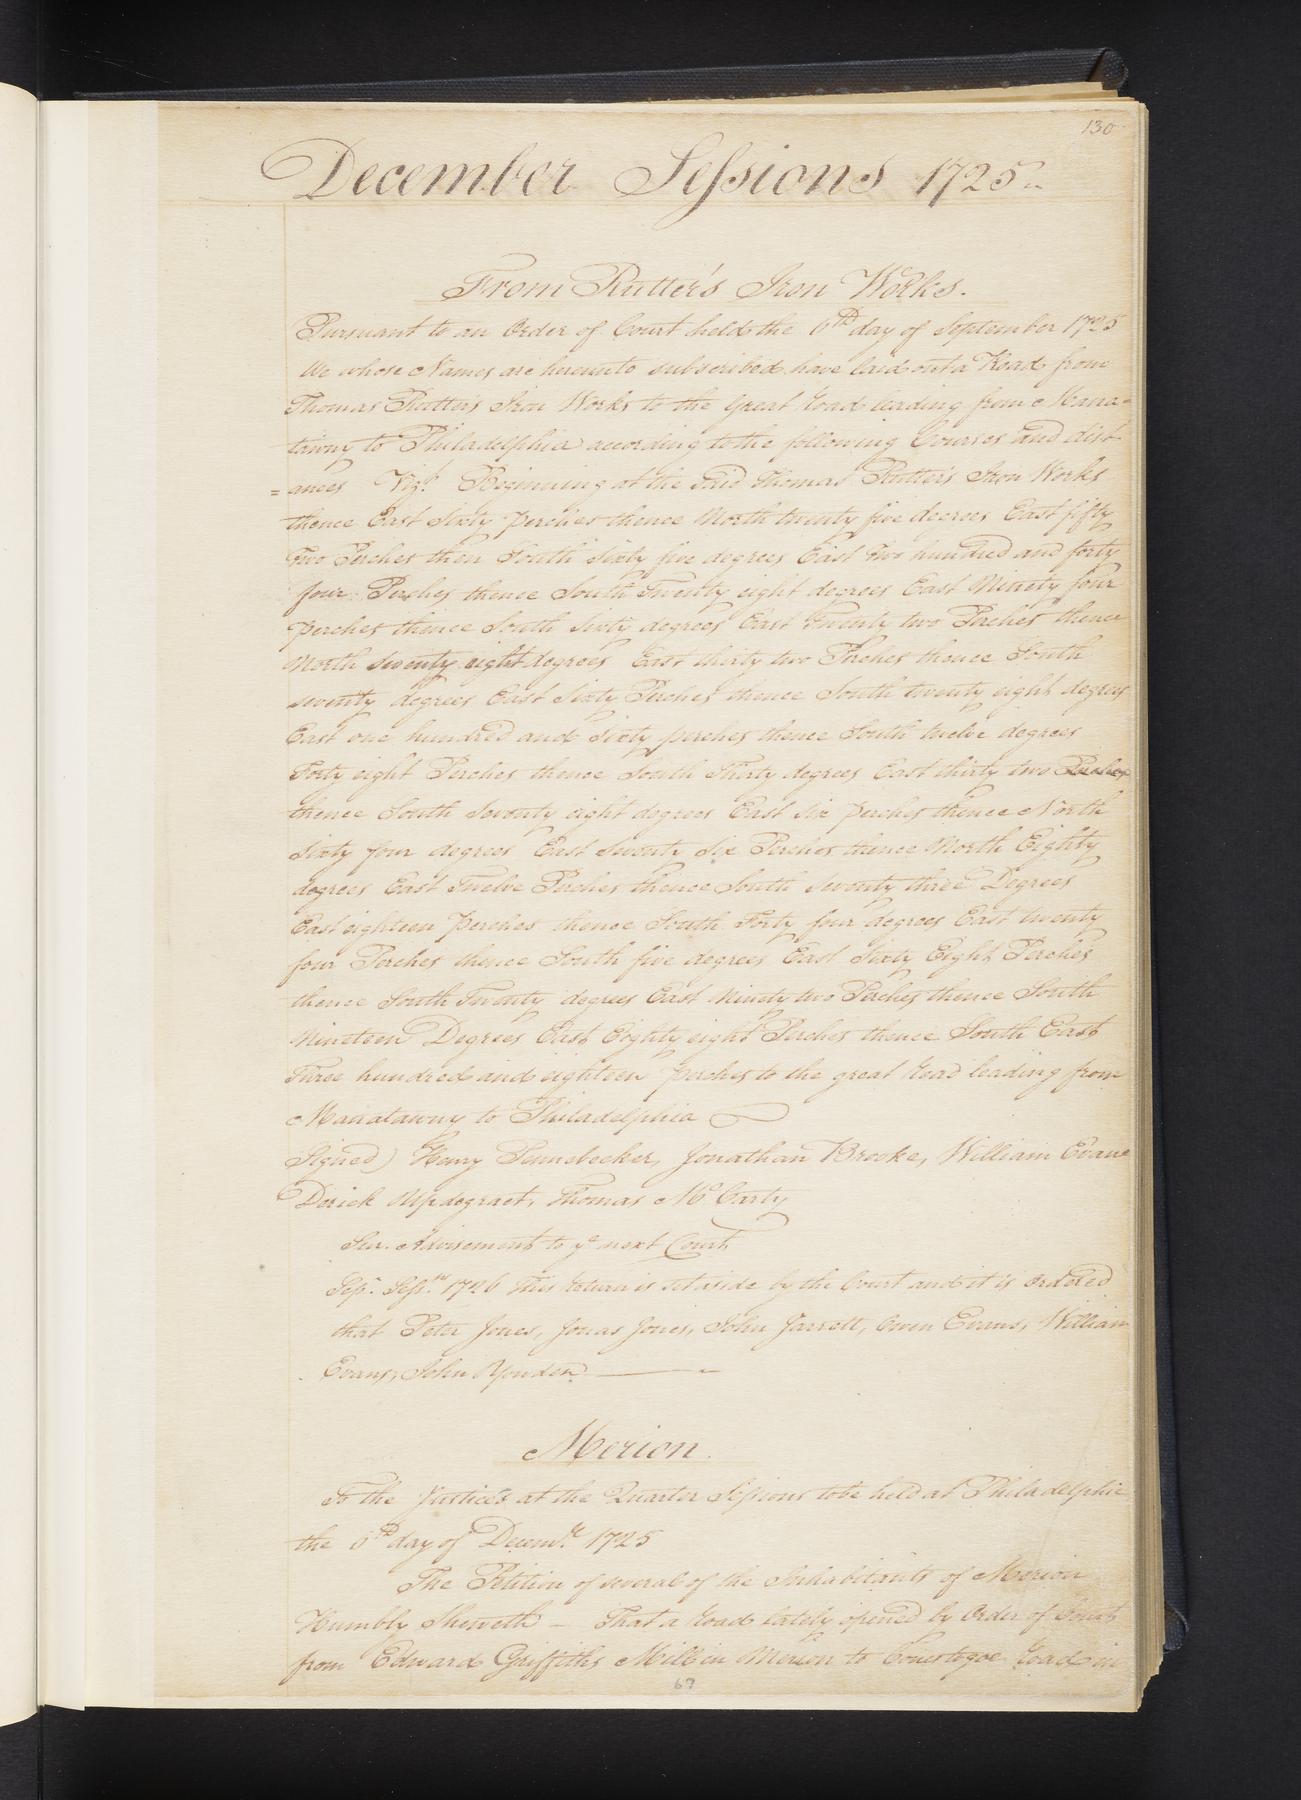 130
December Sessions 1725.
From Rutter's Iron Works.
Pursuant to an Order of Court held the 6th day of September 1725
We whose Names are hereunto subscribed have laid out a Road from
Thomas Rutter's Iron Works to the Great Road leading from Mana-
tawny to Philadelphia according to the following Courses and dist-
=ances Vizt. Beginning at the said Thomas Rutter's Iron Works
thence East Sixty perches thence North twenty five degrees East fifty
two Perches then South Sixty five degrees East two hundred and forty
four Perches thence South Twenty eight degrees East Ninety four
perches thence South Sixty degrees East Twenty two Perches thence
North seventy eight degrees East thirty two Perches thence South
seventy degrees East Sixty Perches thence South twenty eight degrees
East one hundred and Sixty perches thence South twelve degrees
Forty eight Perches thence South Thirty degrees East thirty two Perches
thence South Seventy eight degrees East six perches thence North
Sixty four degrees East Seventy Six Perches thence North Eighty
degrees East Twelve Perches thence South seventy three Degrees
East eighteen perches thence South Forty four degrees East twenty
four Perches thence South five degrees East Sixty Eight Perches
thence South Twenty degrees East Ninety two Perches thence South
Nineteen Degrees East Eighty eight Perches thence South East
Three hundred and eighteen perches to the great Road leading from
Manatawny to Philadelphia
Signed) Henry Pennebecker, Jonathan Brooke, William Evans
Derick Updegraet, Thomas McCarty
Advisement to ye next Court
Sepr. Sessns. 1726 This return is set aside by the Court and it is ordered
that Peter Jones, Jonas Jones, John Jarrett, Owen Evans, William
Evans, John
Merion.
To the Justices at the Quarter Sessions to be held at Philadelphia
the 6th day of Decemr. 1725
The Petition of several of the Inhabitants of Merion
Humbly Sheweth - That a Road lately opened by Order of Court
from Edward Griffiths Mill in Merion to Conestogoe Road in
67